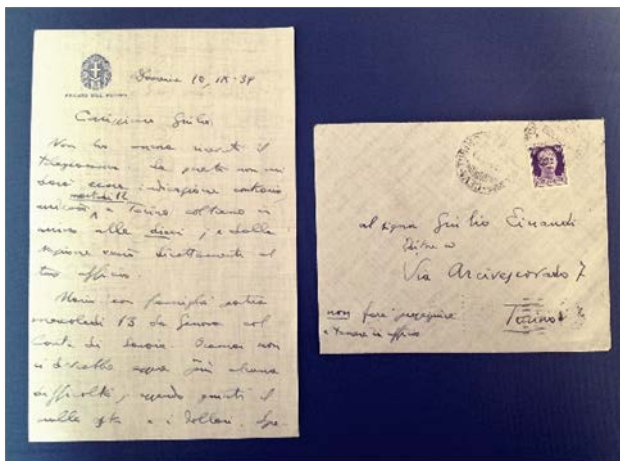 SENATO DEL REGNO
10, IX - 39
Carissimo Giulio,
Non ho ancora ricevuto il
telegramma. Se questo non mi
darà indicazione contraria
martedì 12
a Torino col treno in
arrivo alle dieci; e dalla
stazione verrò direttamente al
tuo ufficio.
Mario con famiglia
mercoledì 13 da Genova col
Conte di Savoia. Oramai non
ci dovrebbe essere più alcuna
difficoltà, avendo avuti il
nulla osta e i dollari. Spe-
al signor Giulio Einaudi
Editore
Via Arcivescovado 7
Torino
non fare proseguire
e tenere in ufficio